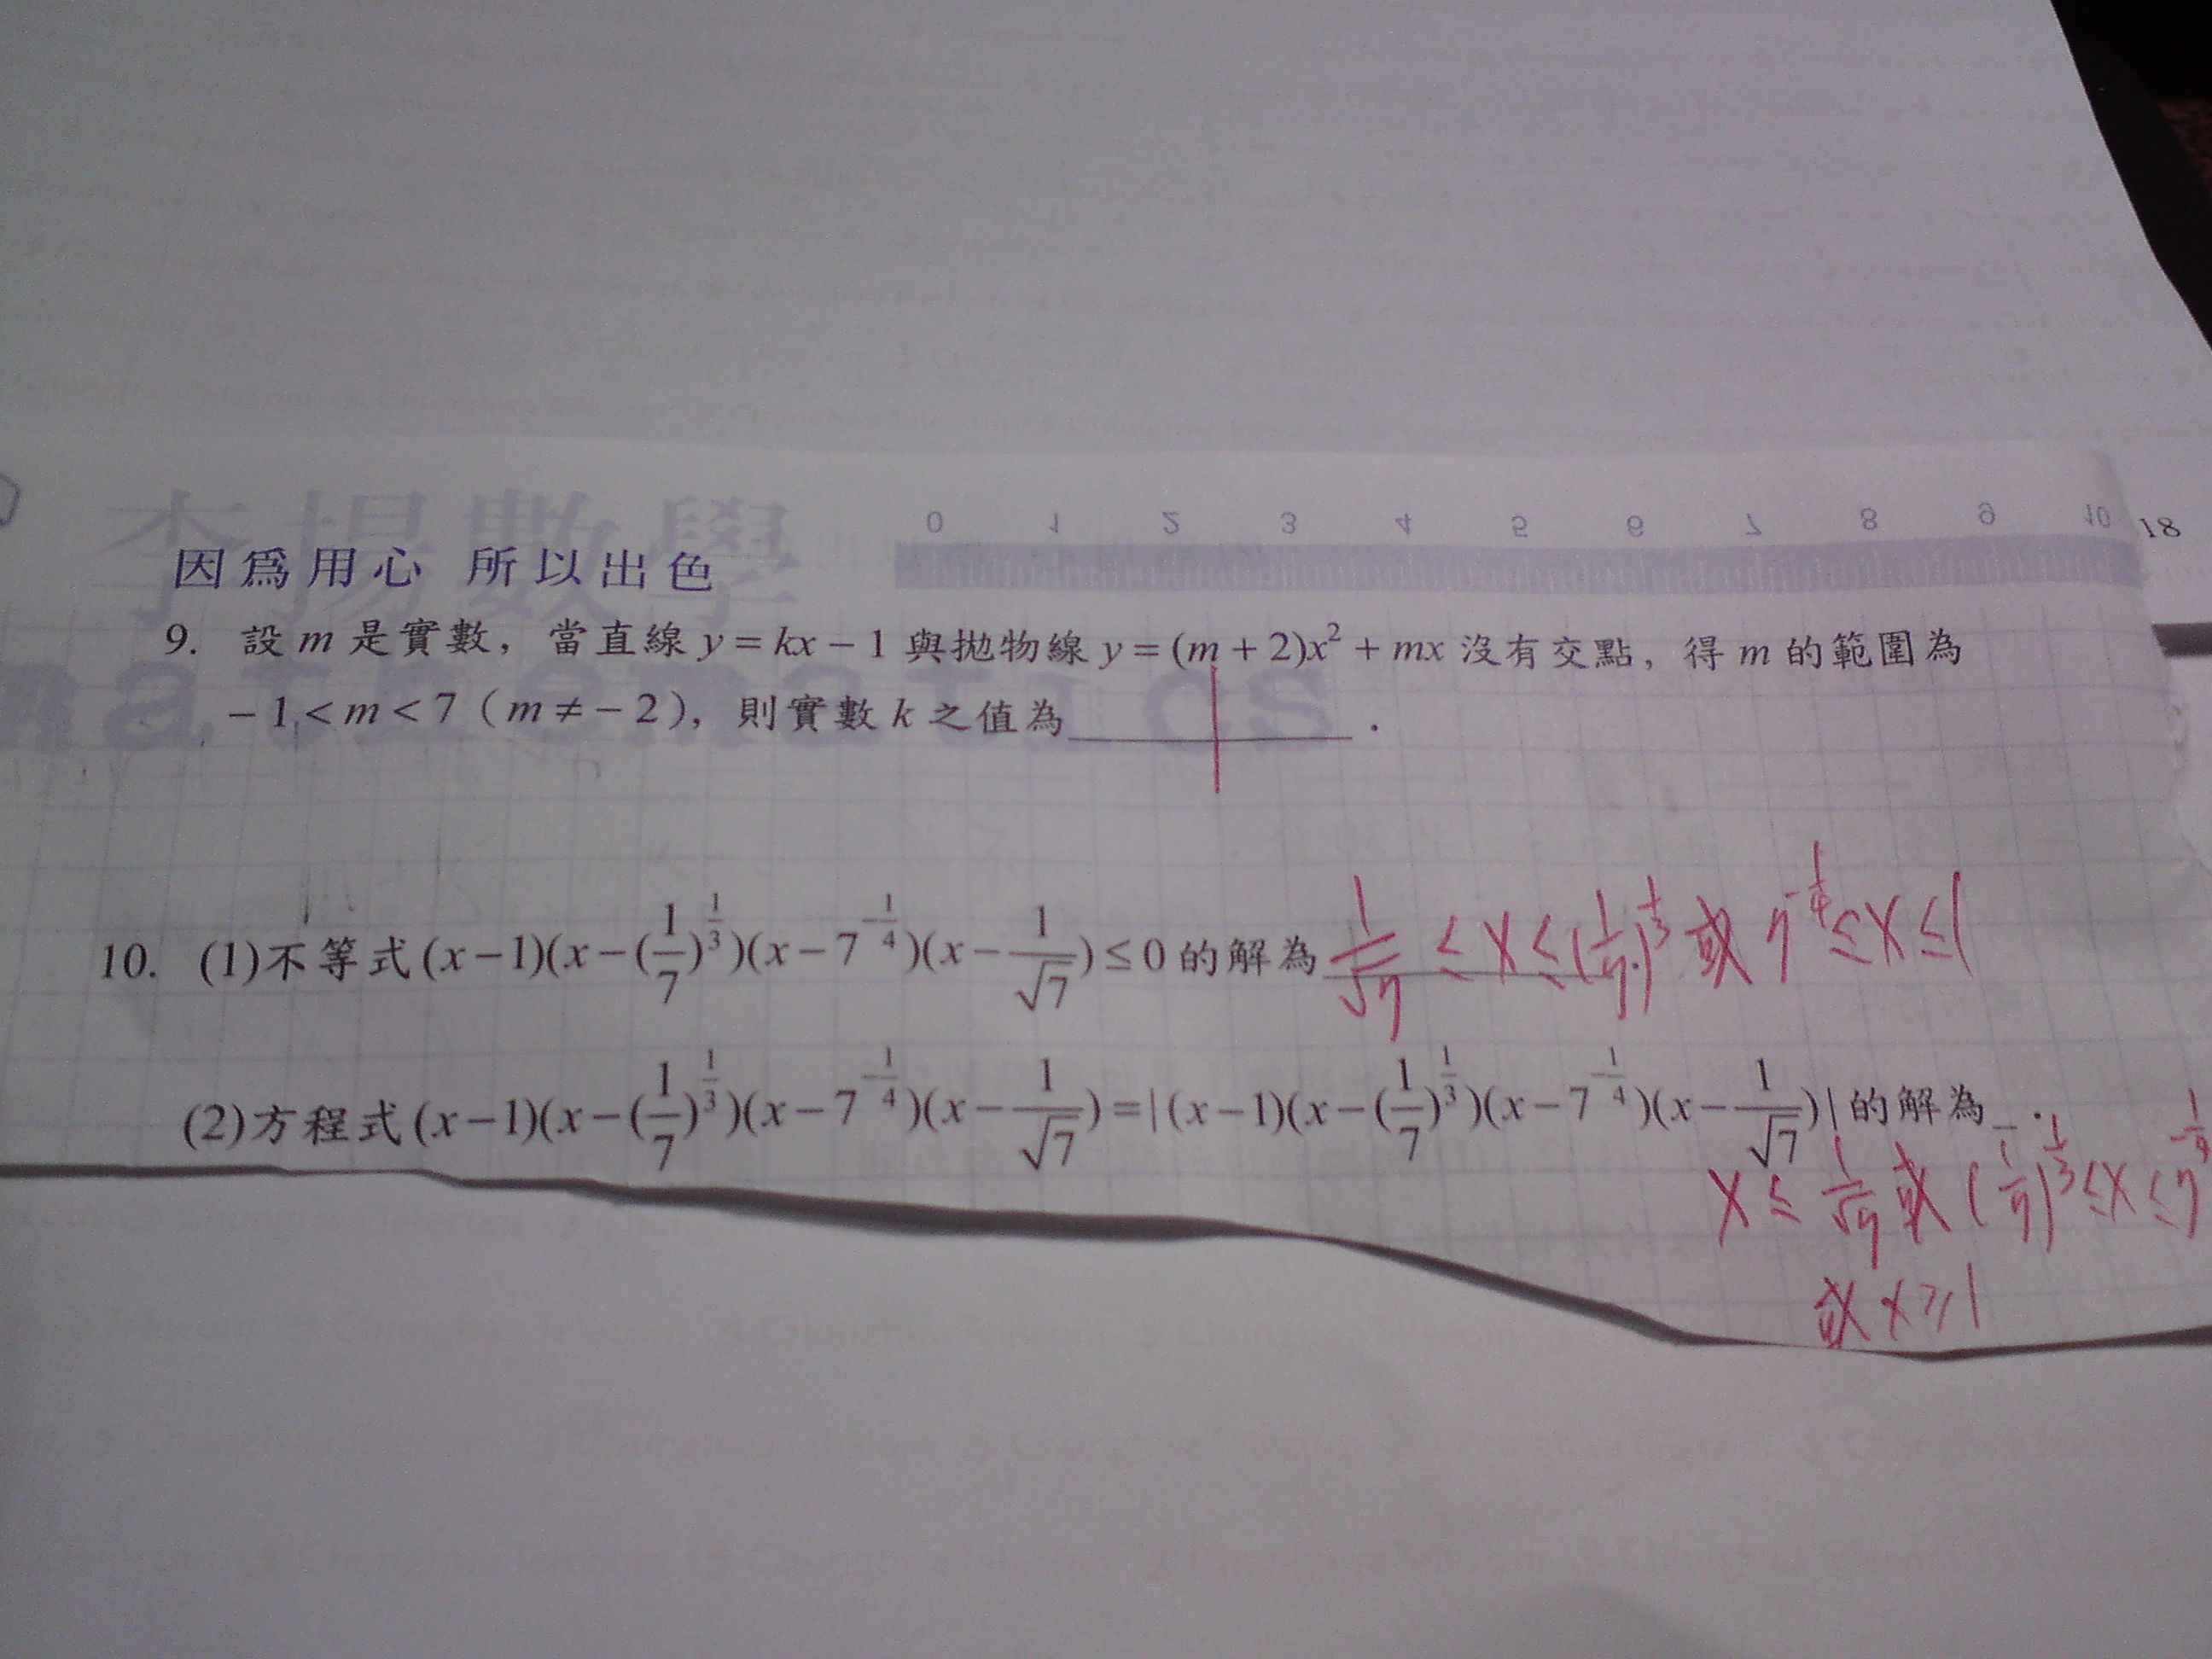 李揚數學
0 1 2 3 4 5 6 7 8 9 10 18
因爲用心 所以出色
mathematics
9. 設 m 是實數，當直線 y = kx − 1 與拋物線 y = (m + 2)x² + mx 沒有交點，得 m 的範圍為
− 1 < m < 7（m ≠ − 2），則實數 k 之值為____________．
10. (1)不等式(x−1)(x−(1/7)^(1/3))(x−7^(−1/4))(x−1/√7)≤0 的解為 1/√7 ≤ x ≤ (1/7)^(1/3) 或 7^(−1/4) ≤ x ≤ 1
(2)方程式(x−1)(x−(1/7)^(1/3))(x−7^(−1/4))(x−1/√7)=|(x−1)(x−(1/7)^(1/3))(x−7^(−1/4))(x−1/√7)|的解為_．
x ≤ 1/√7 或 (1/7)^(1/3) ≤ x ≤ 7^(−1/4)
或 x ≥ 1